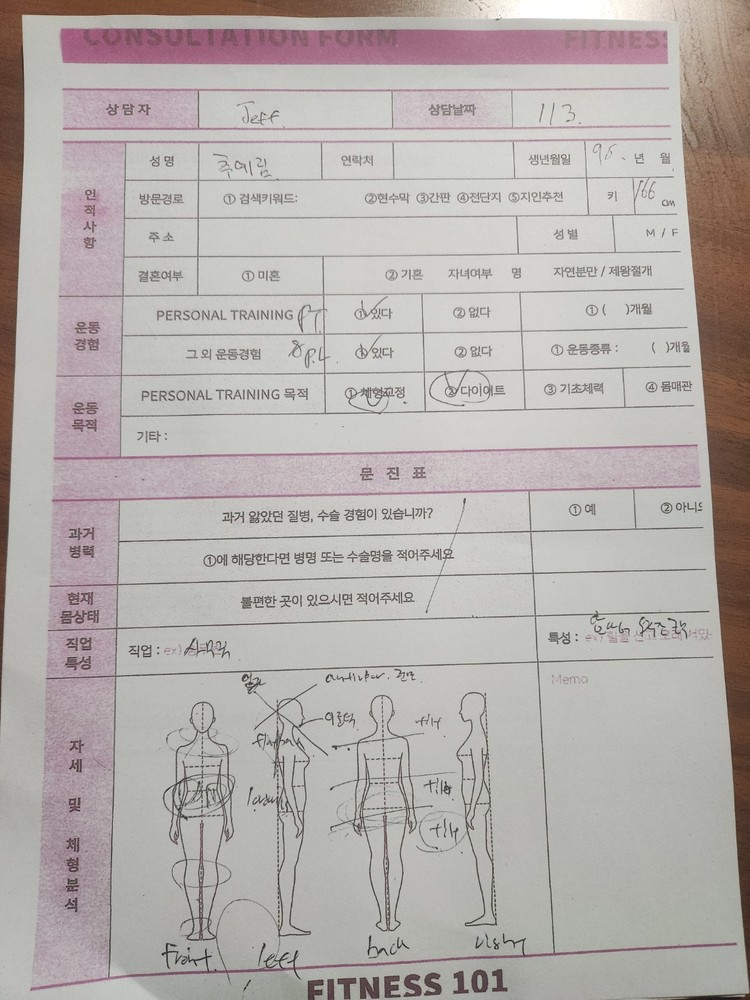 CONSULTATION FORM FITNESS
상담자 Jeff. 상담날짜 1/3.
인적사항
성명 추예림 연락처 생년월일 년 월
방문경로 ① 검색키워드: ②현수막 ③간판 ④전단지 ⑤지인추천 키 166 cm
주소 성별 M / F
결혼여부 ① 미혼 ② 기혼 자녀여부 명 자연분만 / 제왕절개
운동경험
PERSONAL TRAINING P.T. ① 있다 ② 없다 ① ( )개월
그 외 운동경험 & P.L. ① 있다 ② 없다 ① 운동종류 : ( )개월
운동목적
PERSONAL TRAINING 목적 ① 체형교정 ② 다이어트 ③ 기초체력 ④ 몸매관
기타 :
문 진 표
과거병력
과거 앓았던 질병, 수술 경험이 있습니까? ① 예 ② 아니오
①에 해당한다면 병명 또는 수술명을 적어주세요
현재몸상태
불편한 곳이 있으시면 적어주세요
직업특성
직업 : ex) 사무직 특성 : ex)
Memo
자세 및 체형분석
이론적
tilt
tilt
tilt
front. left back right
FITNESS 101